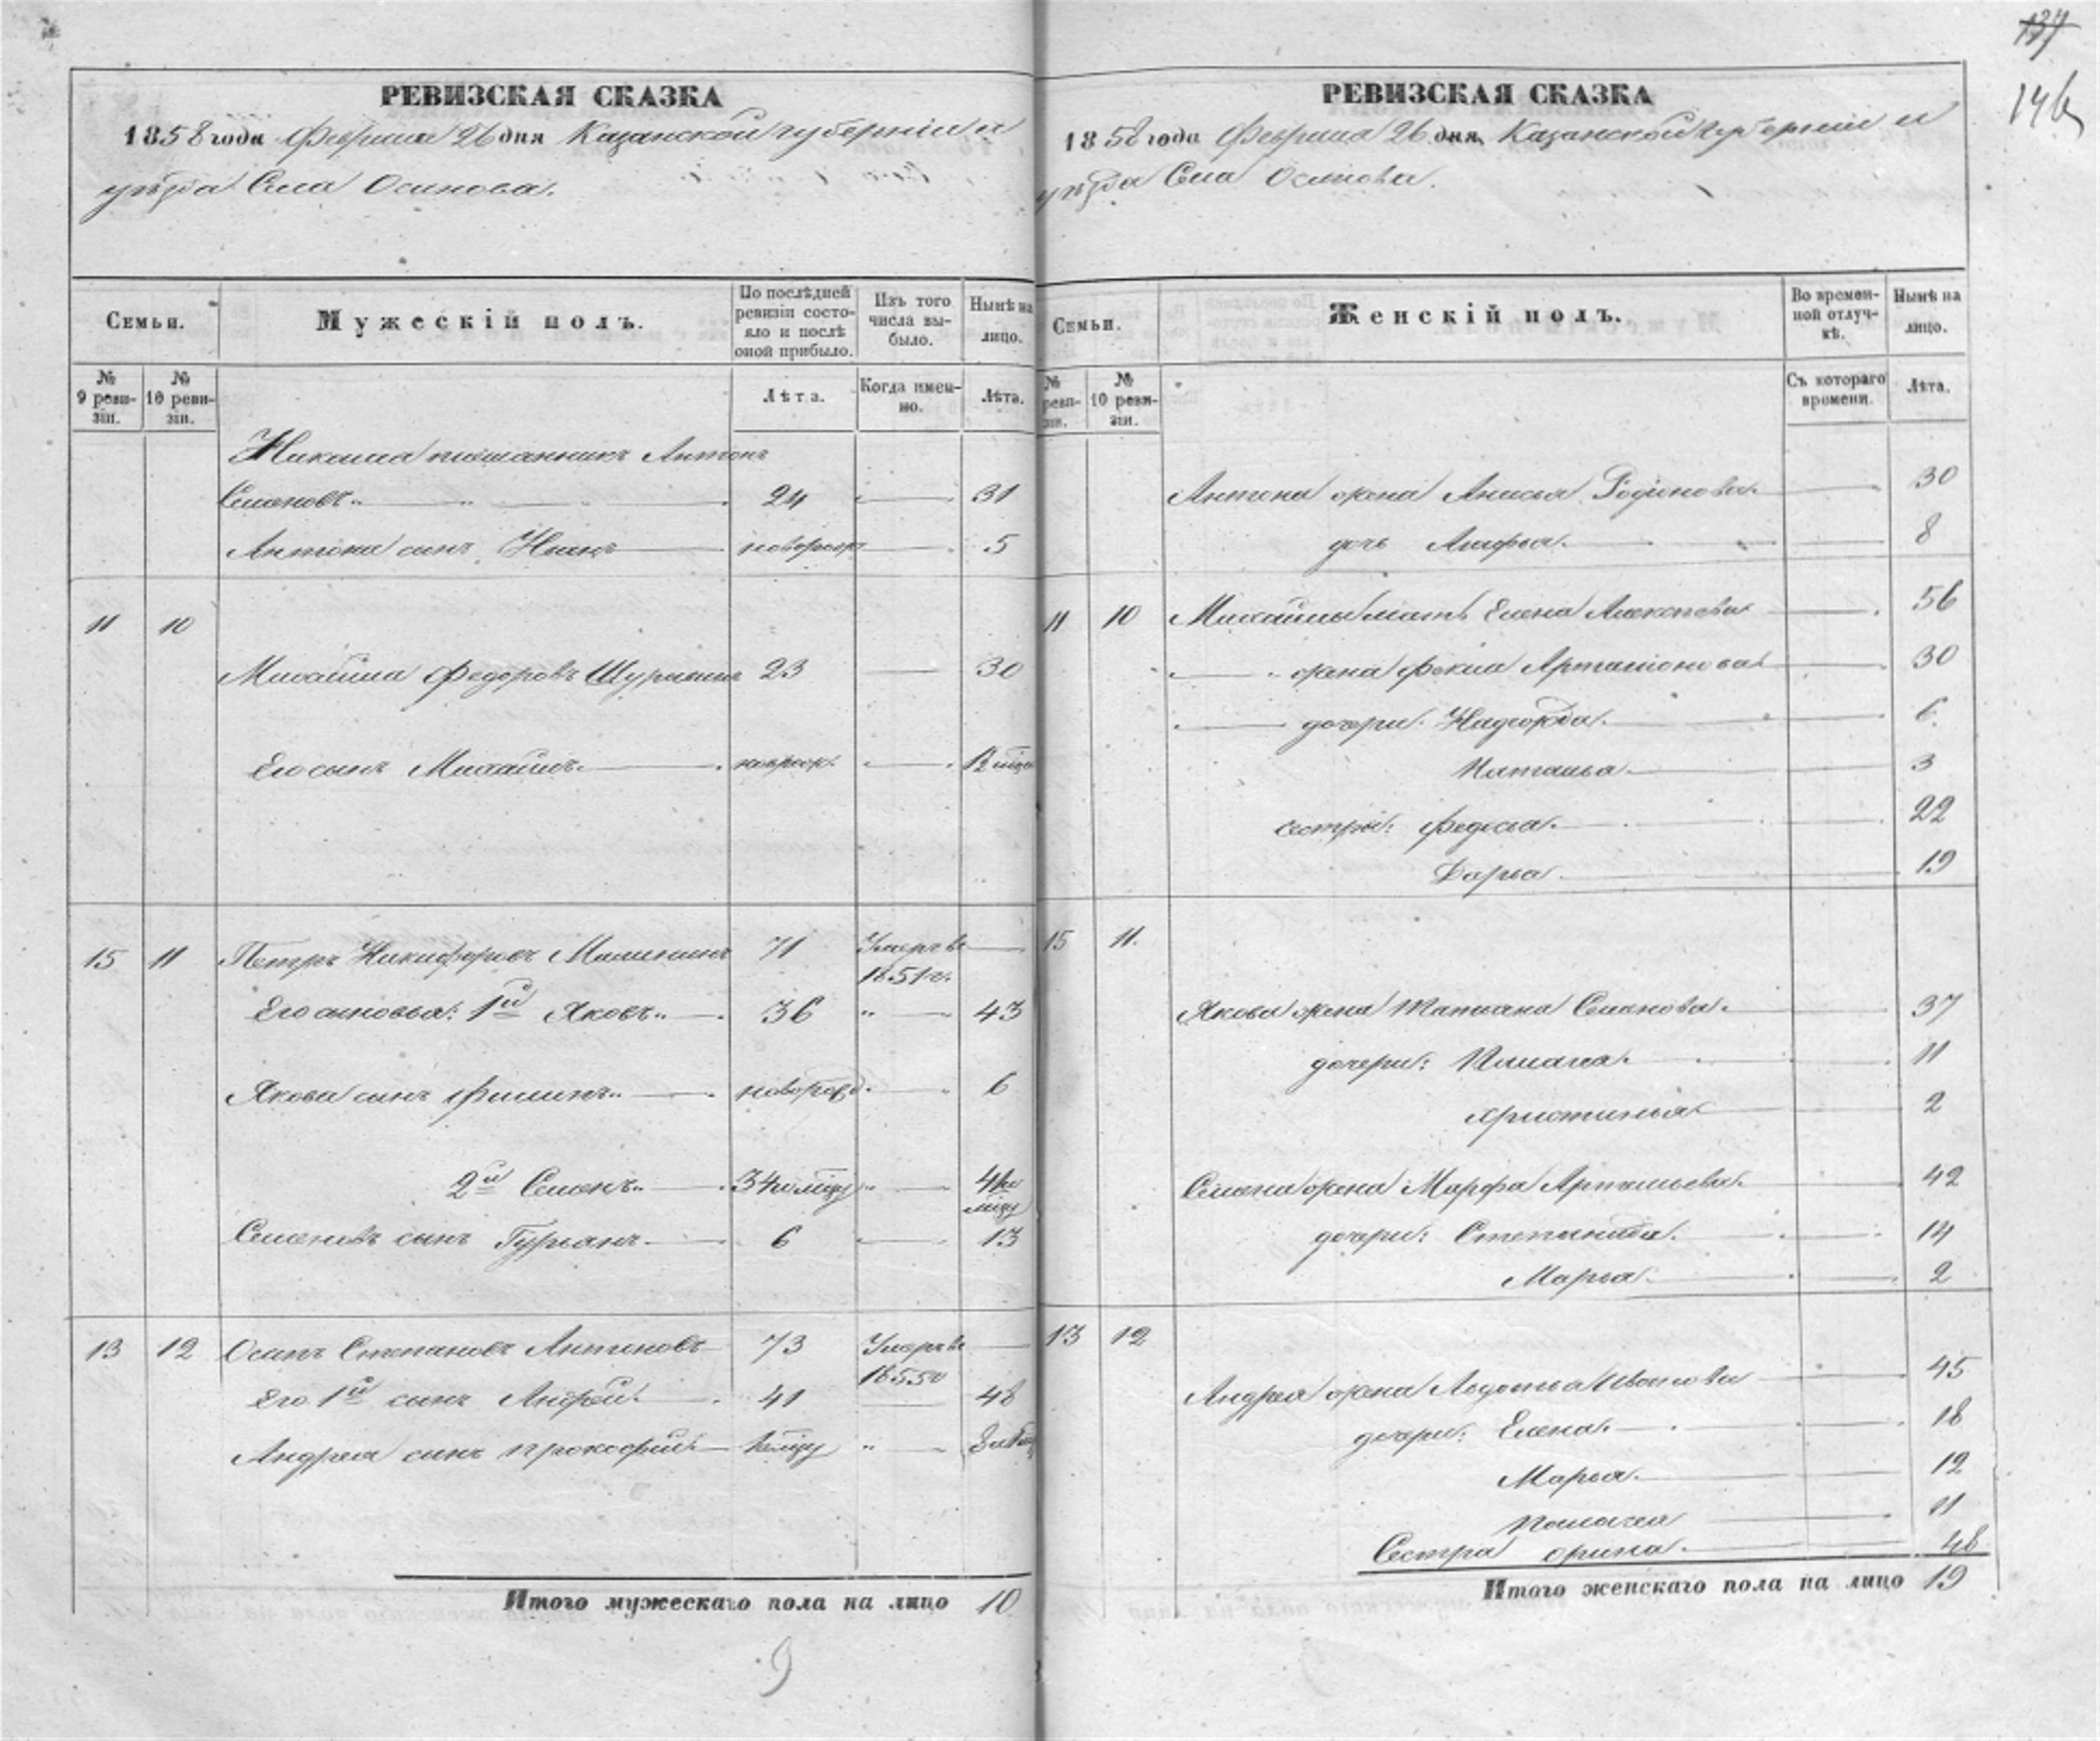 137
146
РЕВИЗСКАЯ СКАЗКА
1858 года Февраля 26 дня Казанской губерніи и
уѣзда Села Осинова.
Семьи.
Мужескій полъ.
По послѣдней ревизіи состояло и послѣ оной прибыло.
Изъ того числа выбыло.
Нынѣ на лицо.
№ 9 ревизіи.
№ 10 ревизіи.
Лѣта.
Когда именно.
Лѣта.
Антонъ
Семеновъ 24 31
Антона сынъ Иванъ новорож 5
11 10
Михайла Федоровъ 23 30
Его сынъ Михайло новорож.
15 11 Петръ Никифоровъ Малининъ 71 Умеръ въ
1851 г.
Его сыновья: 1й Яковъ 36 43
Якова сынъ Филипъ новорожд. 6
2й Семенъ 34
Семеновъ сынъ Гурьянъ 6 13
13 12 Осипъ Степановъ Антиповъ 73 Умеръ въ
1855
Его 1й сынъ Андрей 41 48
Андрея сынъ Прокофий
Итого мужескаго пола на лицо 10
9
РЕВИЗСКАЯ СКАЗКА
1858 года Февраля 26 дня Казанской губерніи и
уѣзда Села Осинова.
Семьи.
Женскій полъ.
Во временной отлучкѣ.
Нынѣ на лицо.
№ ревизіи.
№ 10 ревизіи.
Съ котораго времени.
Лѣта.
Антона жена Анисья Родионова 30
дочь 8
11 10 Михайлы мать Елена Алексеева 56
жена Фекла Артамонова 30
дочери: Надежда 6
Наталья 3
сестры: Федосья 22
Дарья 19
15 11.
Якова жена Татьяна Семенова 37
дочери: Палагея 11
Христинья 2
Семена жена Марфа Артемьева 42
дочери: Степанида 14
Марья 2
13 12
Андрея жена Авдотья 45
дочери: Елена 18
Марья 12
Палагея 11
Сестра Орина 48
Итого женскаго пола на лицо 19